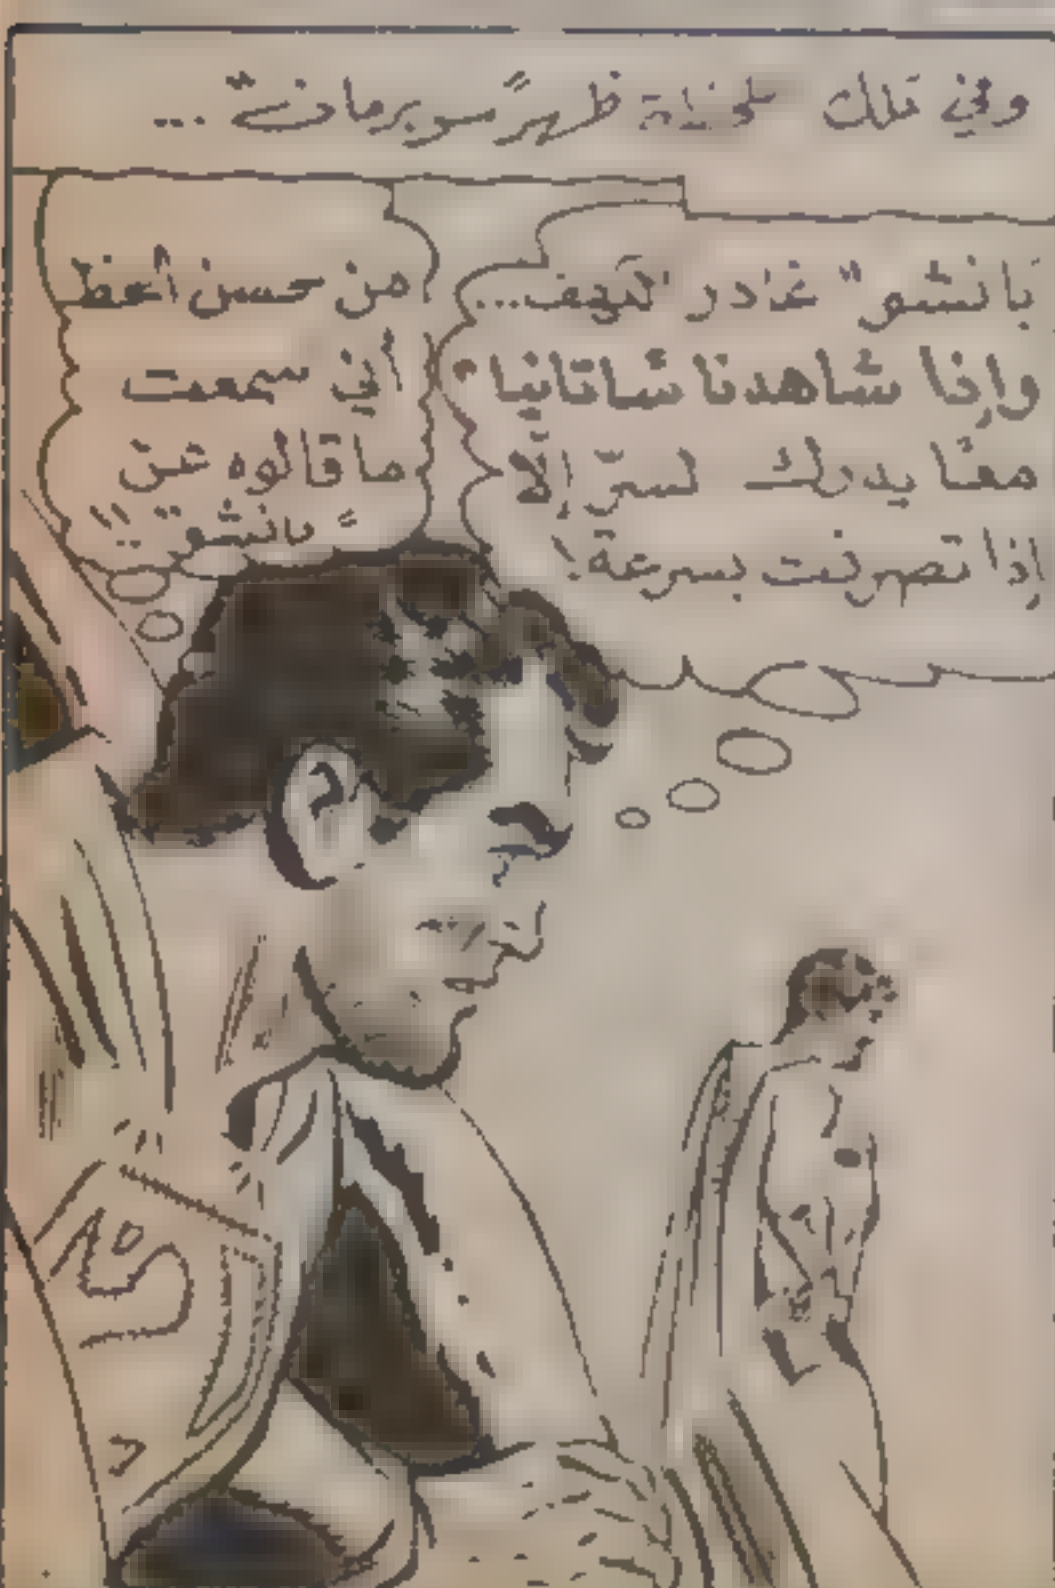 وفي تلك اللحظة ظهر "سوبرمان" ...
"بانشو" غادر الكهف...
وإذا شاهدنا شاتانيا
معًا يدرك السرّ إلّا
إذا تصرفت بسرعة!
من حسن الحظ
أني سمعت
ما قالوه عن
"بانشو"!!